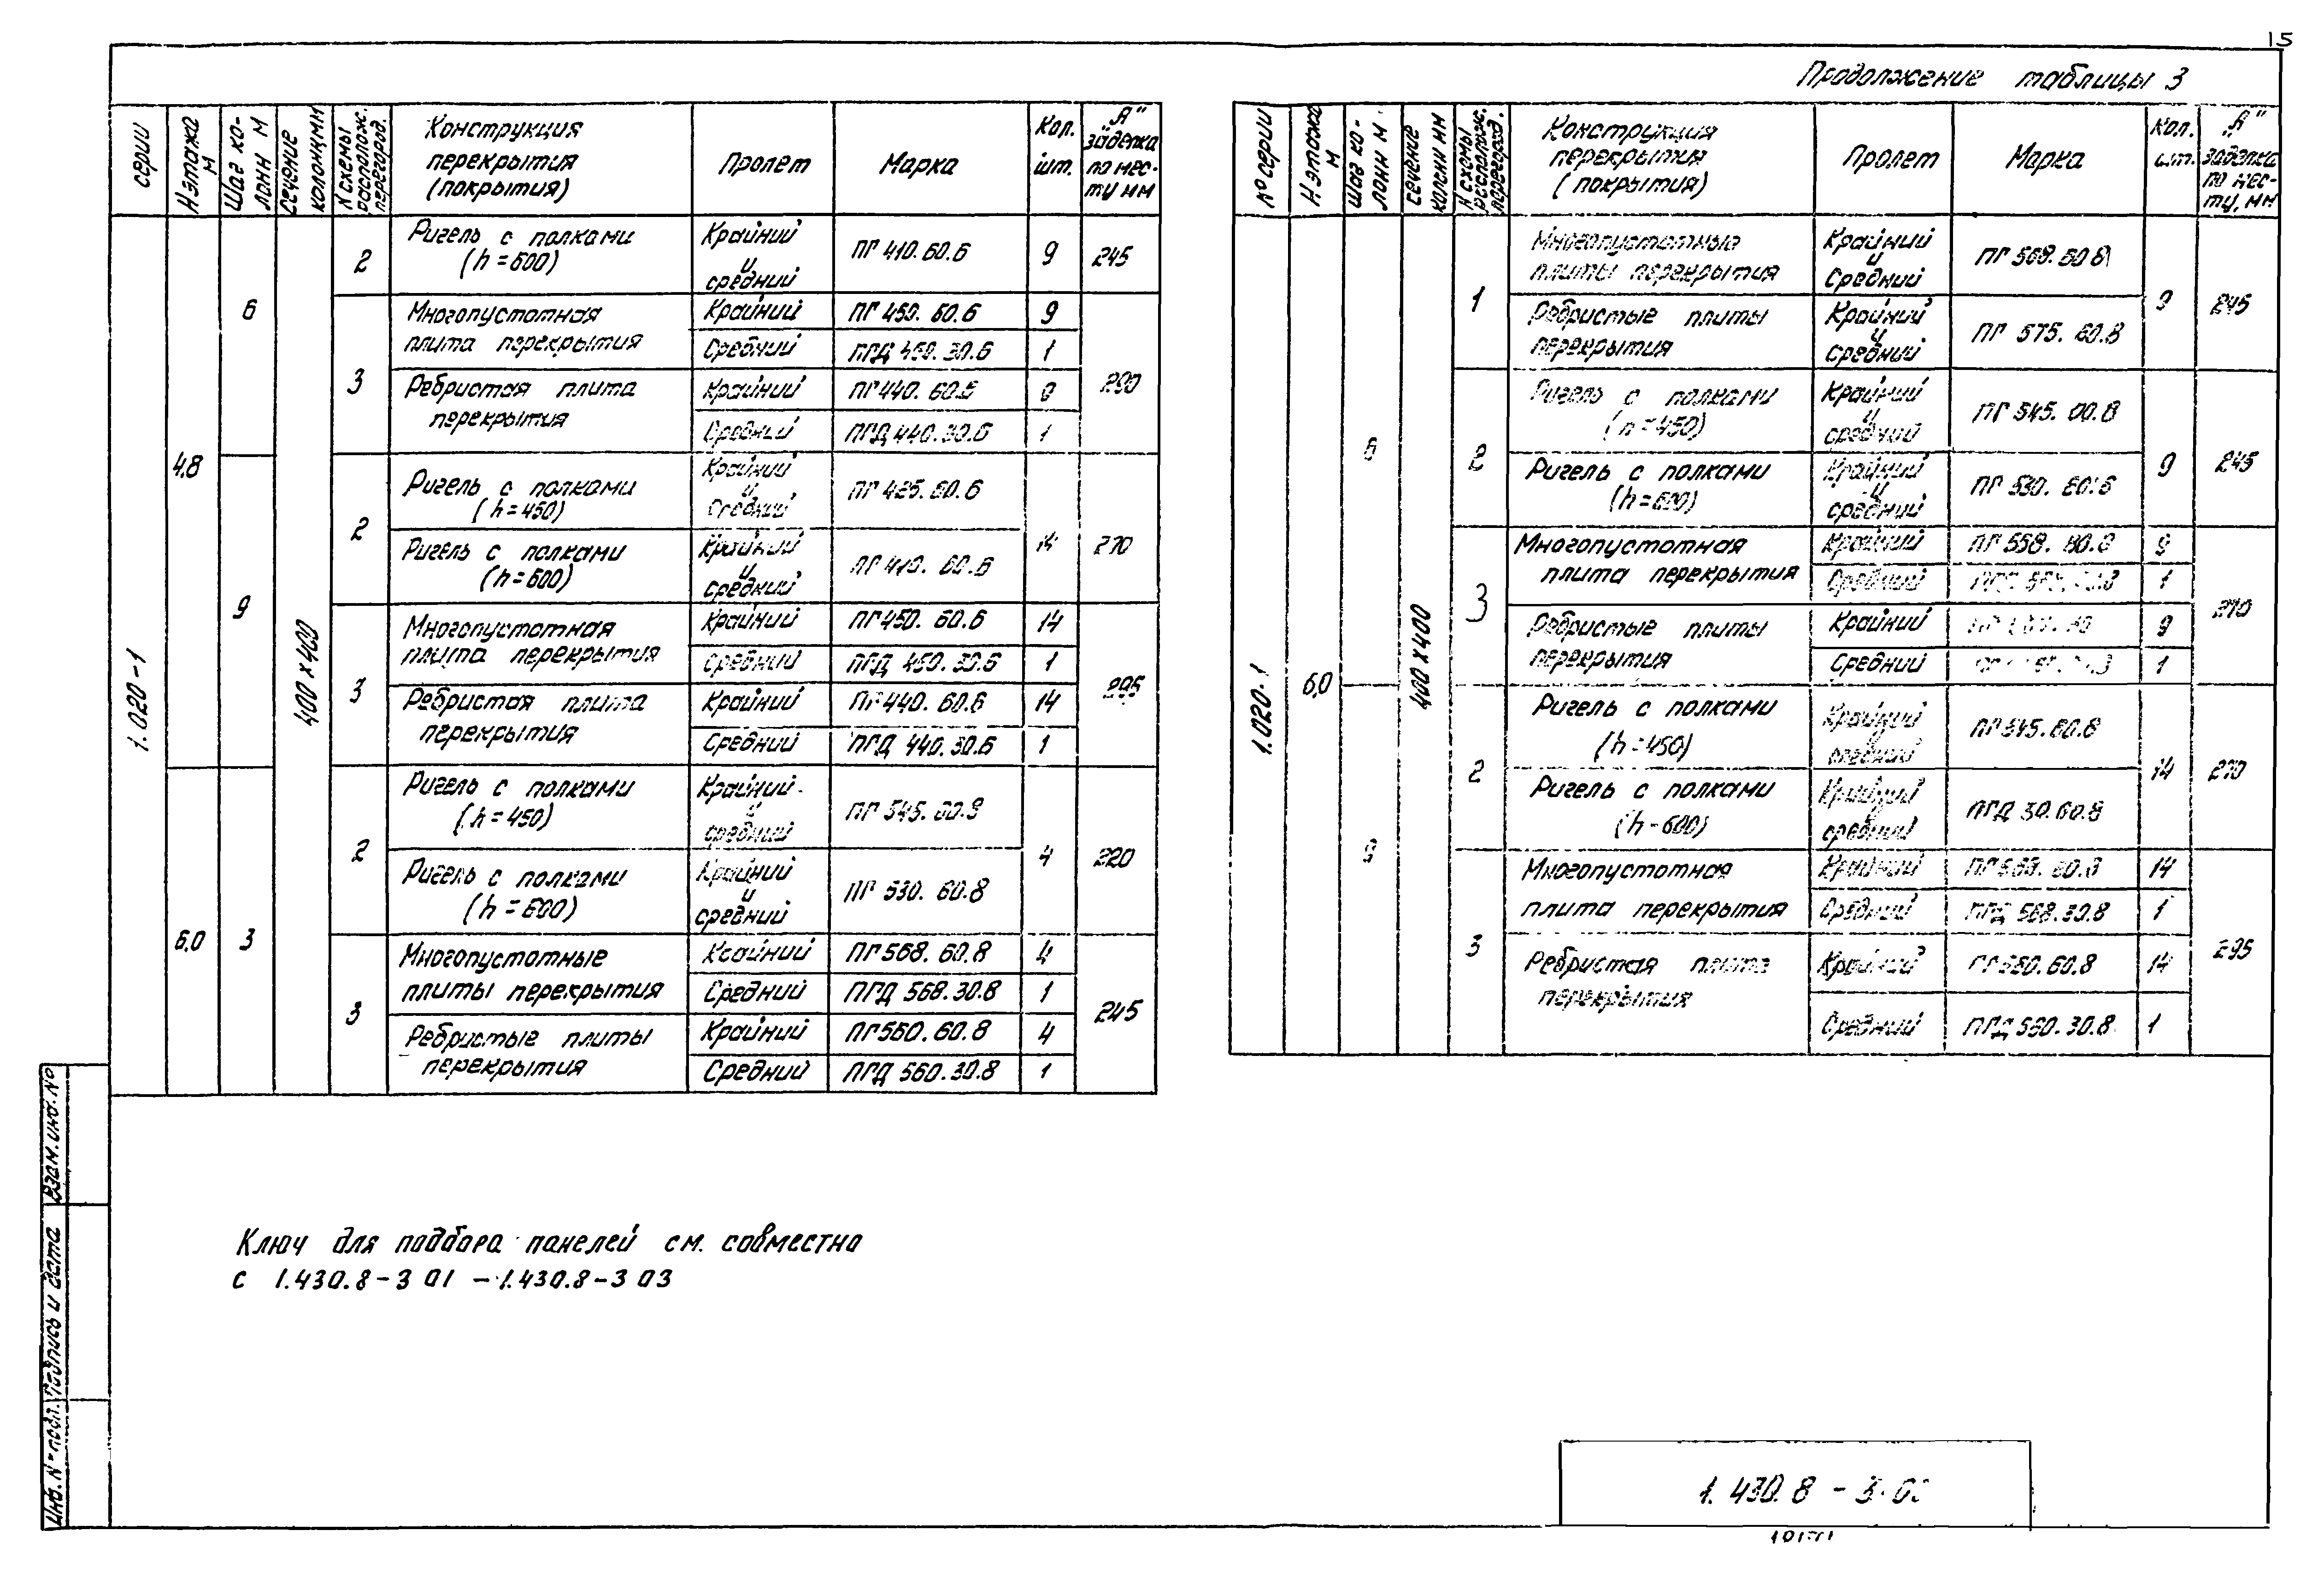 15
Продолжение таблицы 3
серии
Н этажа м
Шаг колонн м
Сечение колонн мм
N схемы располож. перегород.
Конструкция перекрытия (покрытия)
Пролет
Марка
Кол. шт.
"А" заделка по месту мм
1.020-1
4,8
6
400х400
2
Ригель с полками (h=600)
Крайний и средний
ПГ 410.60.6
9
245
3
Многопустотная плита перекрытия
Крайний
ПГ 450.60.6
9
290
Средний
ПГД 450.30.6
1
Ребристая плита перекрытия
Крайний
ПГ 440.60.6
9
Средний
ПГД 440.30.6
1
9
2
Ригель с полками (h=450)
Крайний и средний
ПГ 425.60.6
14
270
Ригель с полками (h=600)
Крайний и средний
ПГ 410.60.6
3
Многопустотная плита перекрытия
Крайний
ПГ 450.60.6
14
295
Средний
ПГД 450.30.6
1
Ребристая плита перекрытия
Крайний
ПГ 440.60.6
14
Средний
ПГД 440.30.6
1
6,0
3
2
Ригель с полками (h=450)
Крайний и средний
ПГ 545.60.8
4
220
Ригель с полками (h=600)
Крайний и средний
ПГ 530.60.8
3
Многопустотные плиты перекрытия
Крайний
ПГ 568.60.8
4
245
Средний
ПГД 568.30.8
1
Ребристые плиты перекрытия
Крайний
ПГ 560.60.8
4
Средний
ПГД 560.30.8
1
№ серии
Н этажа м
Шаг колонн м
сечение колонн мм
N схемы располож. перегород.
Конструкция перекрытия (покрытия)
Пролет
Марка
Кол. шт.
"А" заделка по месту, мм
1.020-1
6,0
6
400х400
1
Многопустотные плиты перекрытия
Крайний и Средний
ПГ 568.60.8
9
245
Ребристые плиты перекрытия
Крайний и средний
ПГ 575.60.8
2
Ригель с полками (h=450)
Крайний и средний
ПГ 545.60.8
9
245
Ригель с полками (h=600)
Крайний и средний
ПГ 530.60.8
3
Многопустотная плита перекрытия
Крайний
9
270
Средний
1
Ребристые плиты перекрытия
Крайний
9
Средний
1
9
2
Ригель с полками (h=450)
Крайний средний
ПГ 545.60.8
14
270
Ригель с полками (h-600)
Крайний и средний
ПГД 30.60.8
3
Многопустотная плита перекрытия
Крайний
ПГ 568.60.8
14
295
Средний
ПГД 568.30.8
1
Ребристая плита перекрытия
Крайний
ПГ 560.60.8
14
Средний
ПГД 560.30.8
1
Ключ для подбора панелей см. совместно
с 1.430.8-3 01 - 1.430.8-3 03
Взам. инв. №
Подпись и дата
Инв. № подл.
1.430.8 - 3